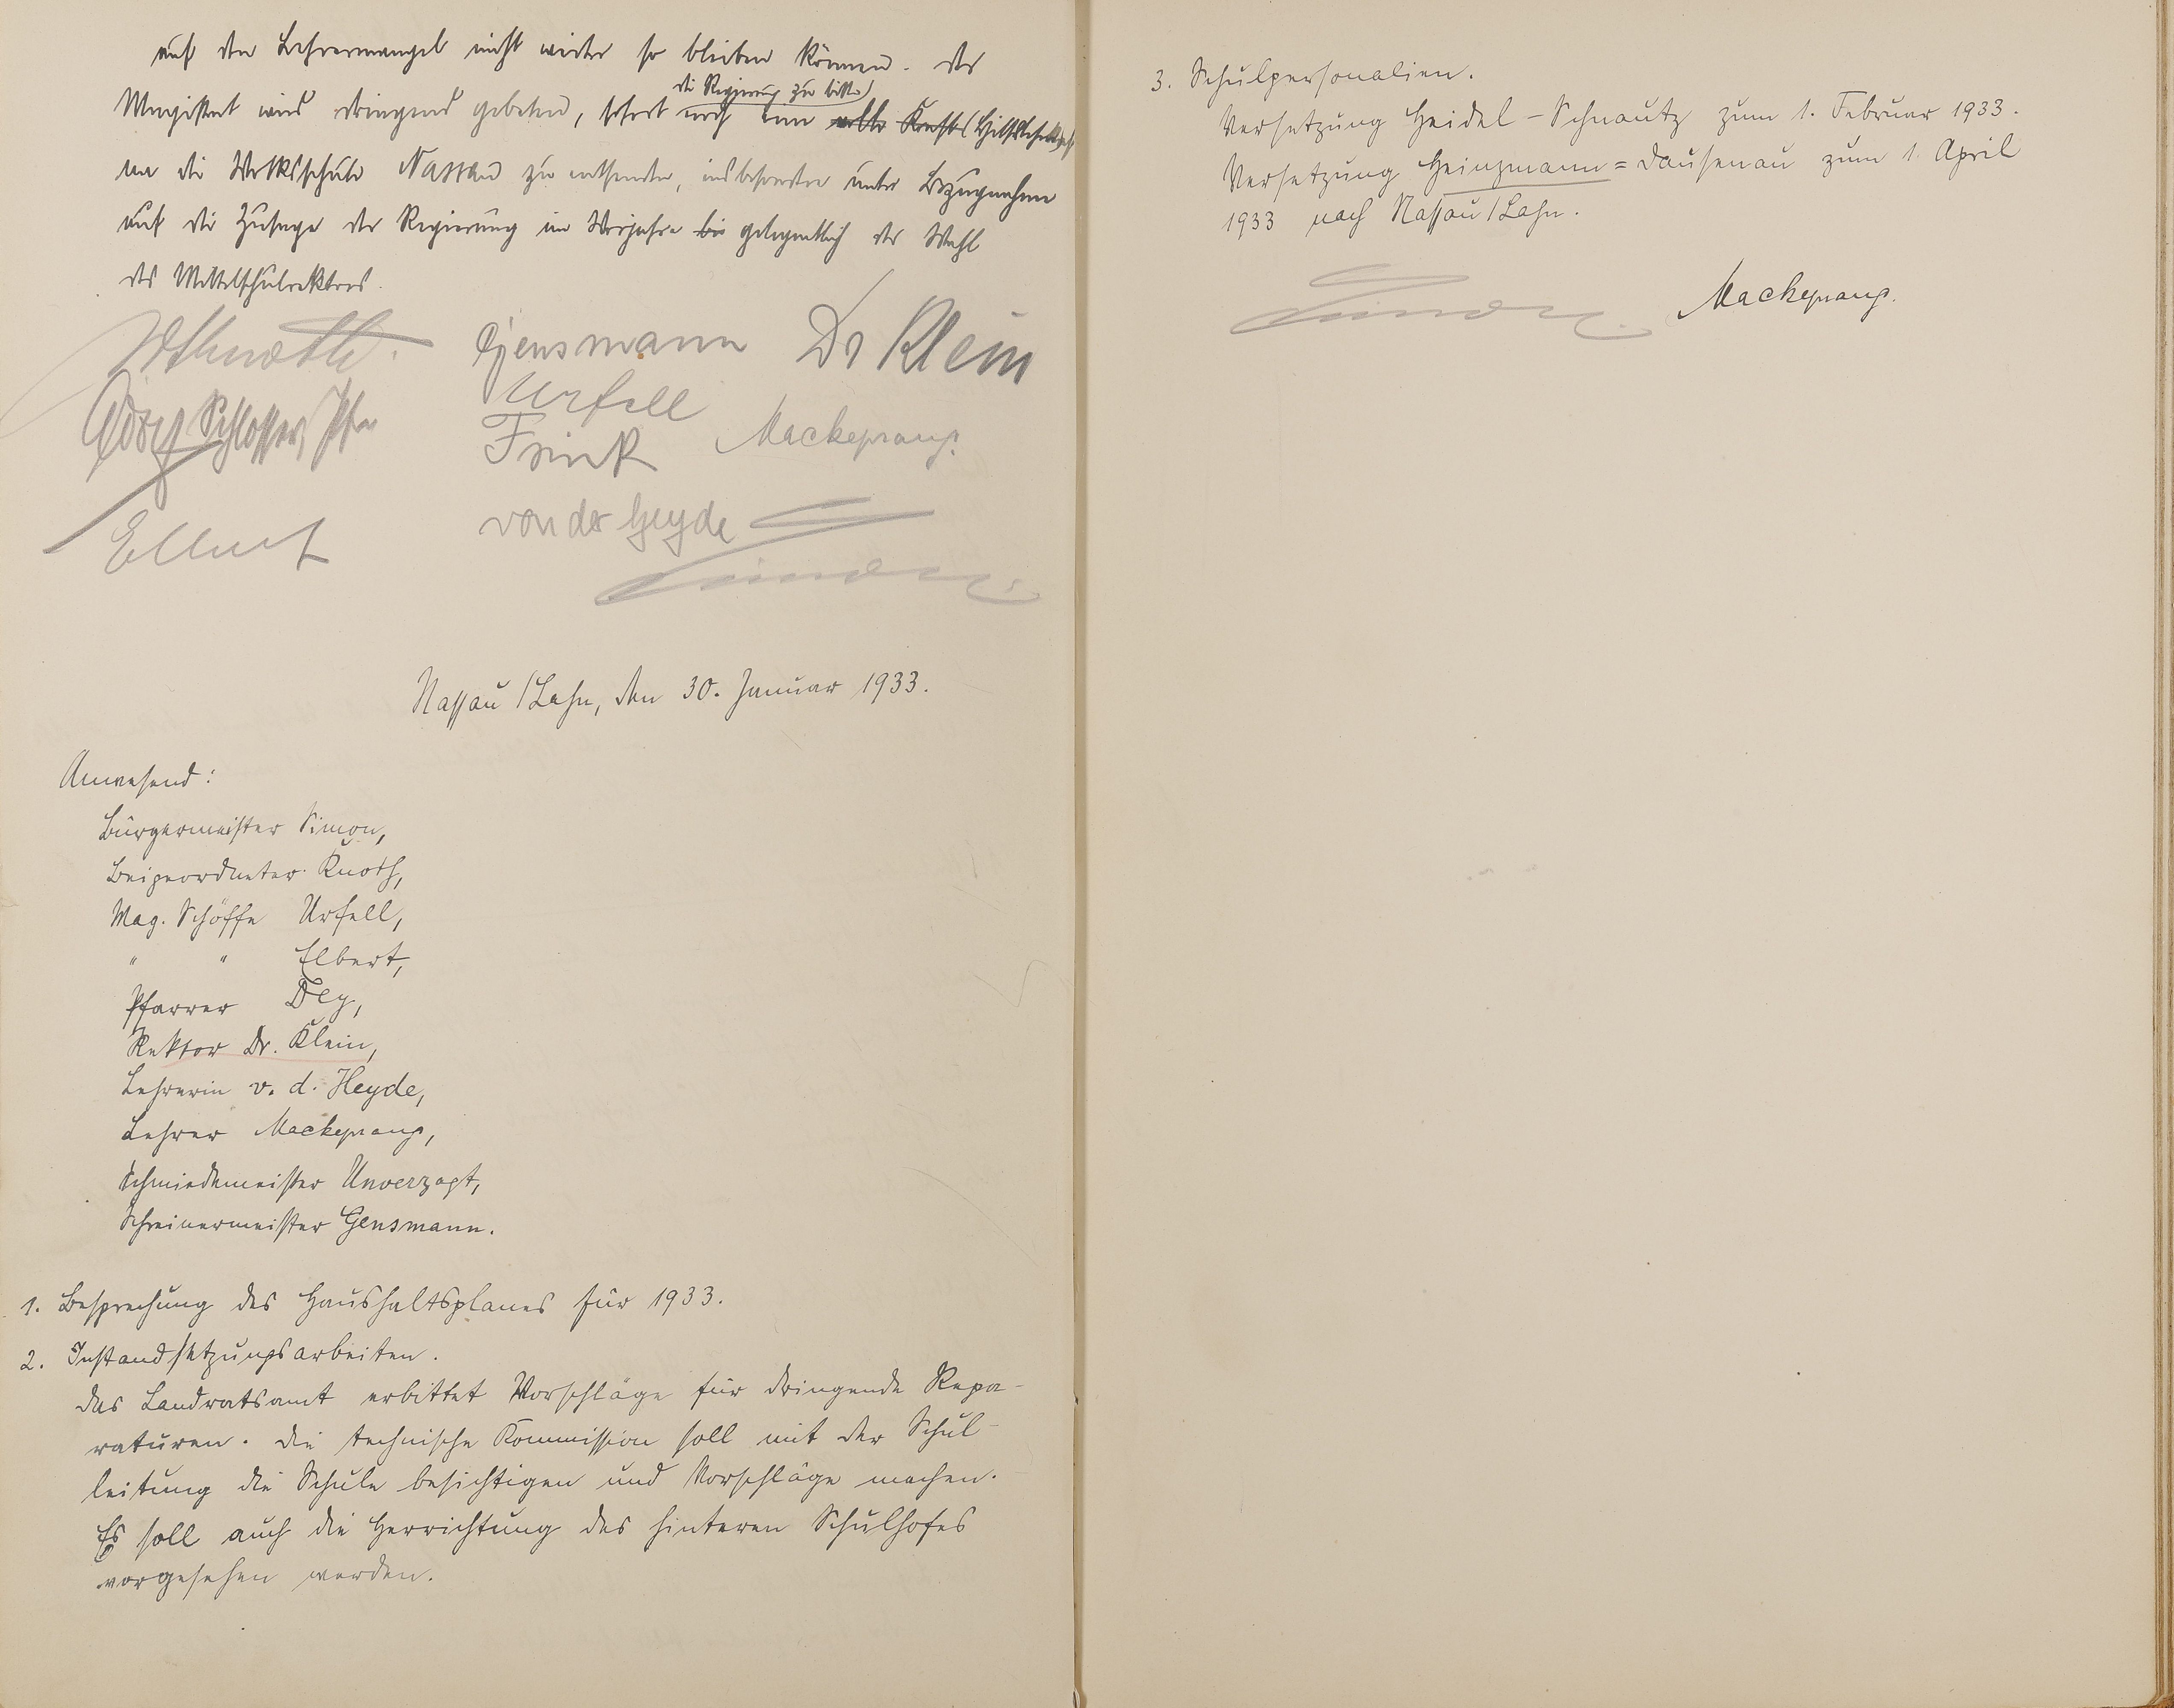 auf den Lehrermangel nicht weiter so bleiben können. Der
die Regierung zu bitten
Magistrat wird dringend gebeten, sofort noch eine volle Kraft (Hilfslehrkraft)
an die Volksschule Nassau zu entsenden, insbesondere unter Bezugnahme
auf die Zusage der Regierung im Vorjahre bei gelegentlich der Wahl
des Mittelschulrektors.
Gensmann Dr Klein
Urfell
Schlosser, Pfr
Frink Mackeprang.
von der Heyde
Elbert
Simon
Nassau/Lahn, den 30. Januar 1933.
Anwesend:
Bürgermeister Simon,
Beigeordneter Knoth,
Mag. Schöffe Urfell,
" " Elbert,
Pfarrer Dey,
Rektor Dr. Klein,
Lehrerin v. d. Heyde,
Lehrer Mackeprang,
Schmiedemeister Unverzagt,
Schreinermeister Gensmann.
1. Besprechung des Haushaltsplanes für 1933.
2. Instandsetzungsarbeiten.
Das Landratsamt erbittet Vorschläge für dringende Repa-
raturen. Die technische Kommission soll mit der Schul-
leitung die Schule besichtigen und Vorschläge machen.
Es soll auch die Herrichtung des hinteren Schulhofes
vorgesehen werden.
3. Schulpersonalien.
Versetzung Heidel - Schnautz zum 1. Februar 1933.
Versetzung Heinzmann = Dausenau zum 1. April
1933 nach Nassau/Lahn.
Simon Mackeprang.